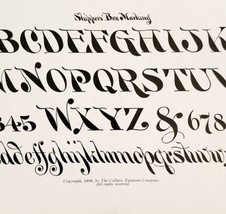 Shippers' Box Marking
ABCDEFGHIJK
MNOPQRSTUV
345 WXYZ & 678
bcddeffghijklmnopqrstuvw
Copyright, 1899, by The Colliery Engineer Company.
All rights reserved.